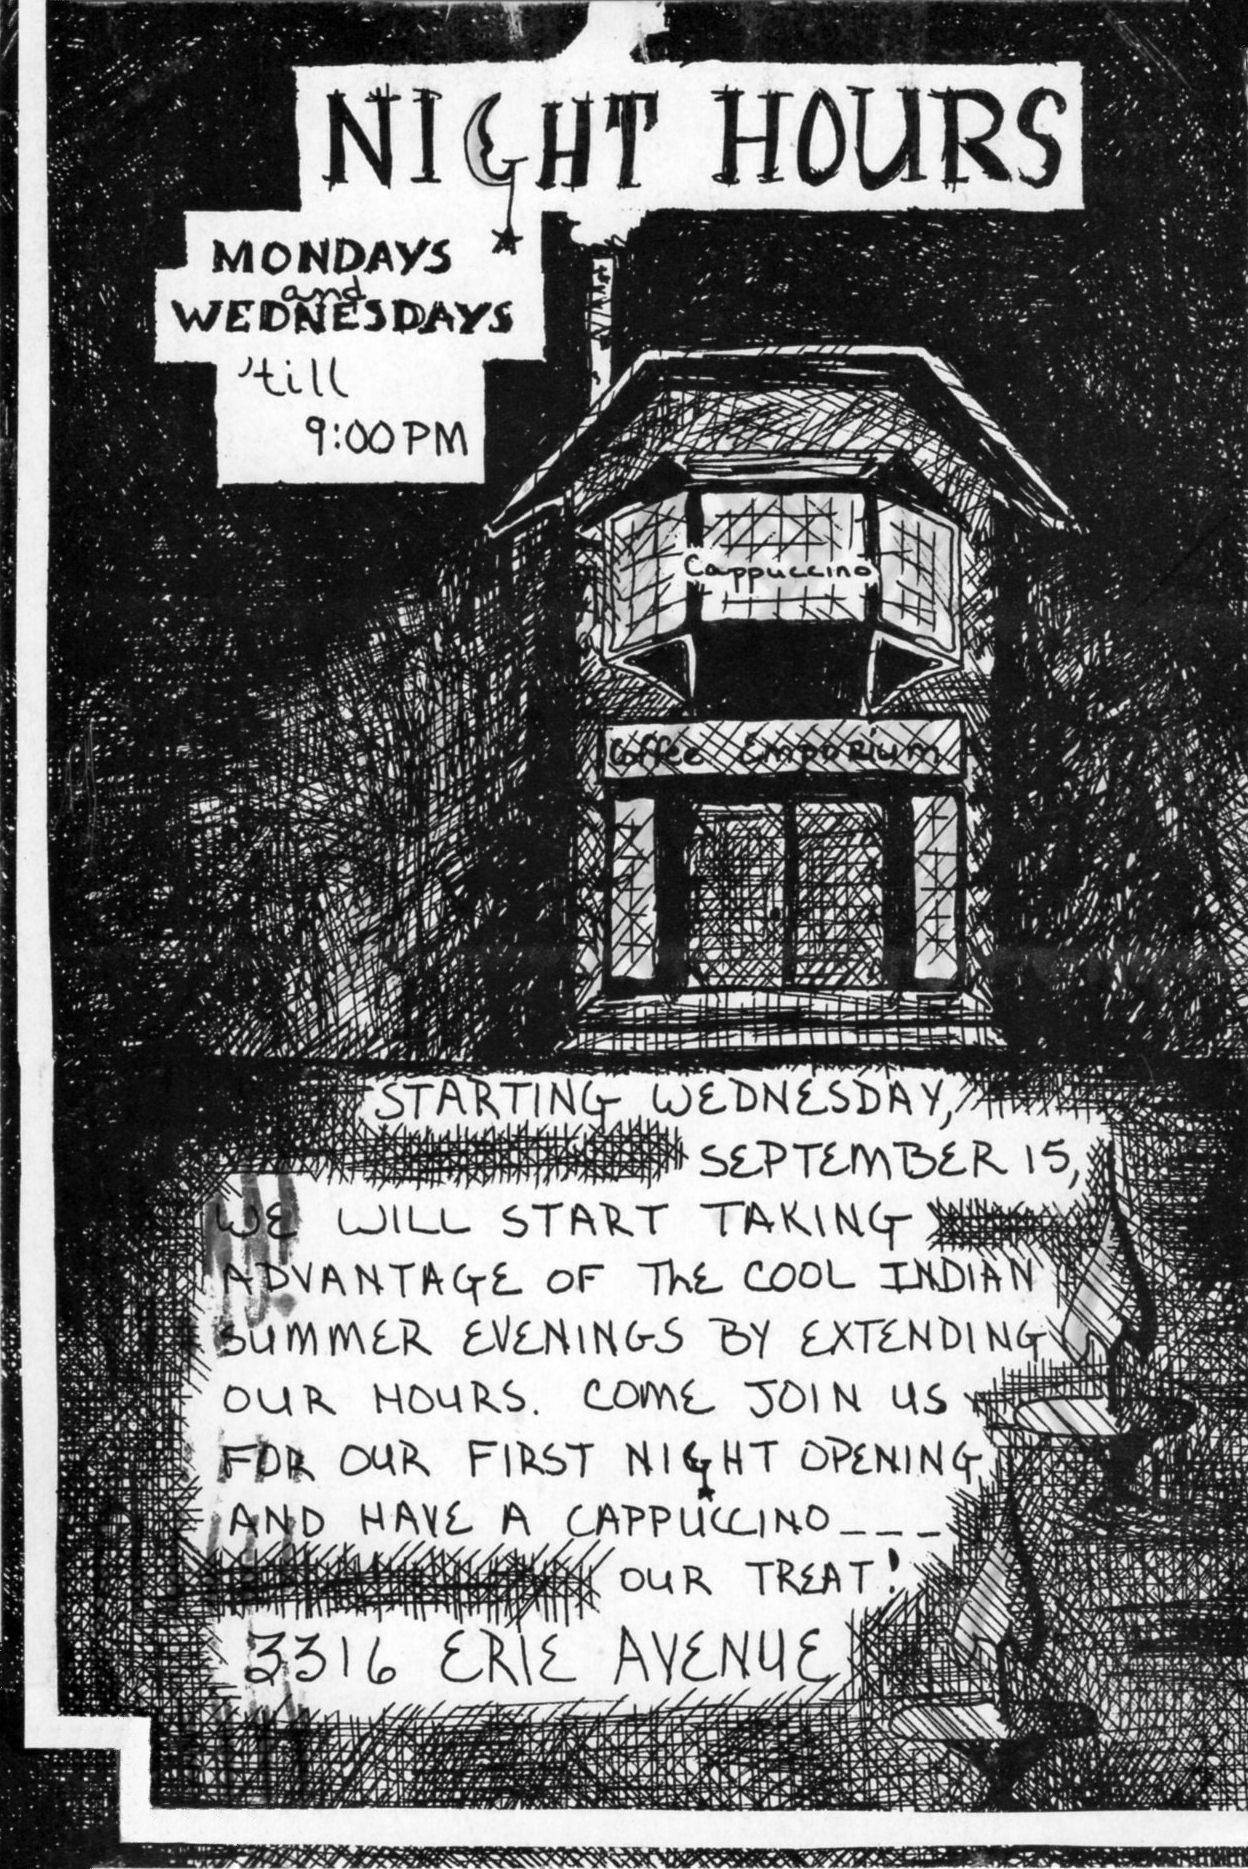 NIGHT HOURS
MONDAYS
and
WEDNESDAYS
'till
9:00 PM
Cappuccino
Coffee Emporium
STARTING WEDNESDAY,
SEPTEMBER 15,
WE WILL START TAKING
ADVANTAGE OF THE COOL INDIAN
SUMMER EVENINGS BY EXTENDING
OUR HOURS. COME JOIN US
FOR OUR FIRST NIGHT OPENING
AND HAVE A CAPPUCCINO___
OUR TREAT!
3316 ERIE AVENUE